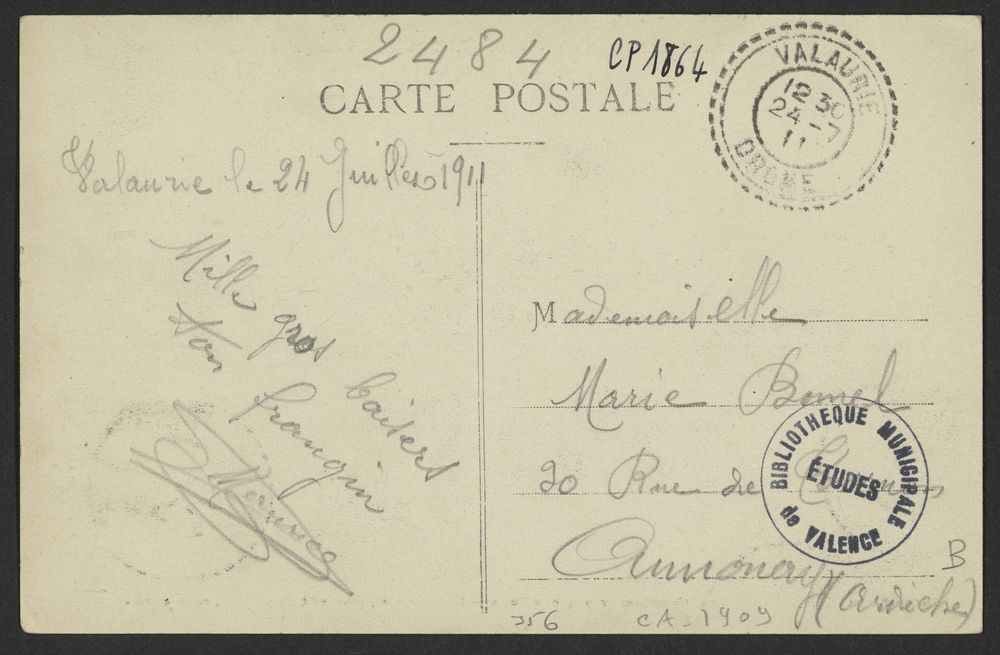 2484
CP1864
CARTE POSTALE
VALAURIE
12 30
24 - 7
11
DROME
Valaurie le 24 Juillet 1911
Mille gros baisers
Ton frangin
Maurice
Mademoiselle
Marie
20 Rue de
Annonay
(Ardèche)
BIBLIOTHEQUE MUNICIPALE
ÉTUDES
de VALENCE
B
356
CA. 1909